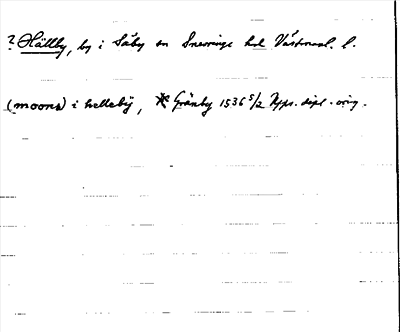 ? Hällby, by i Säby sn Snevringe hd Västmanl. l.
(moons) i helleby, Gränby 1536 5/2 Upps. dipl. orig.